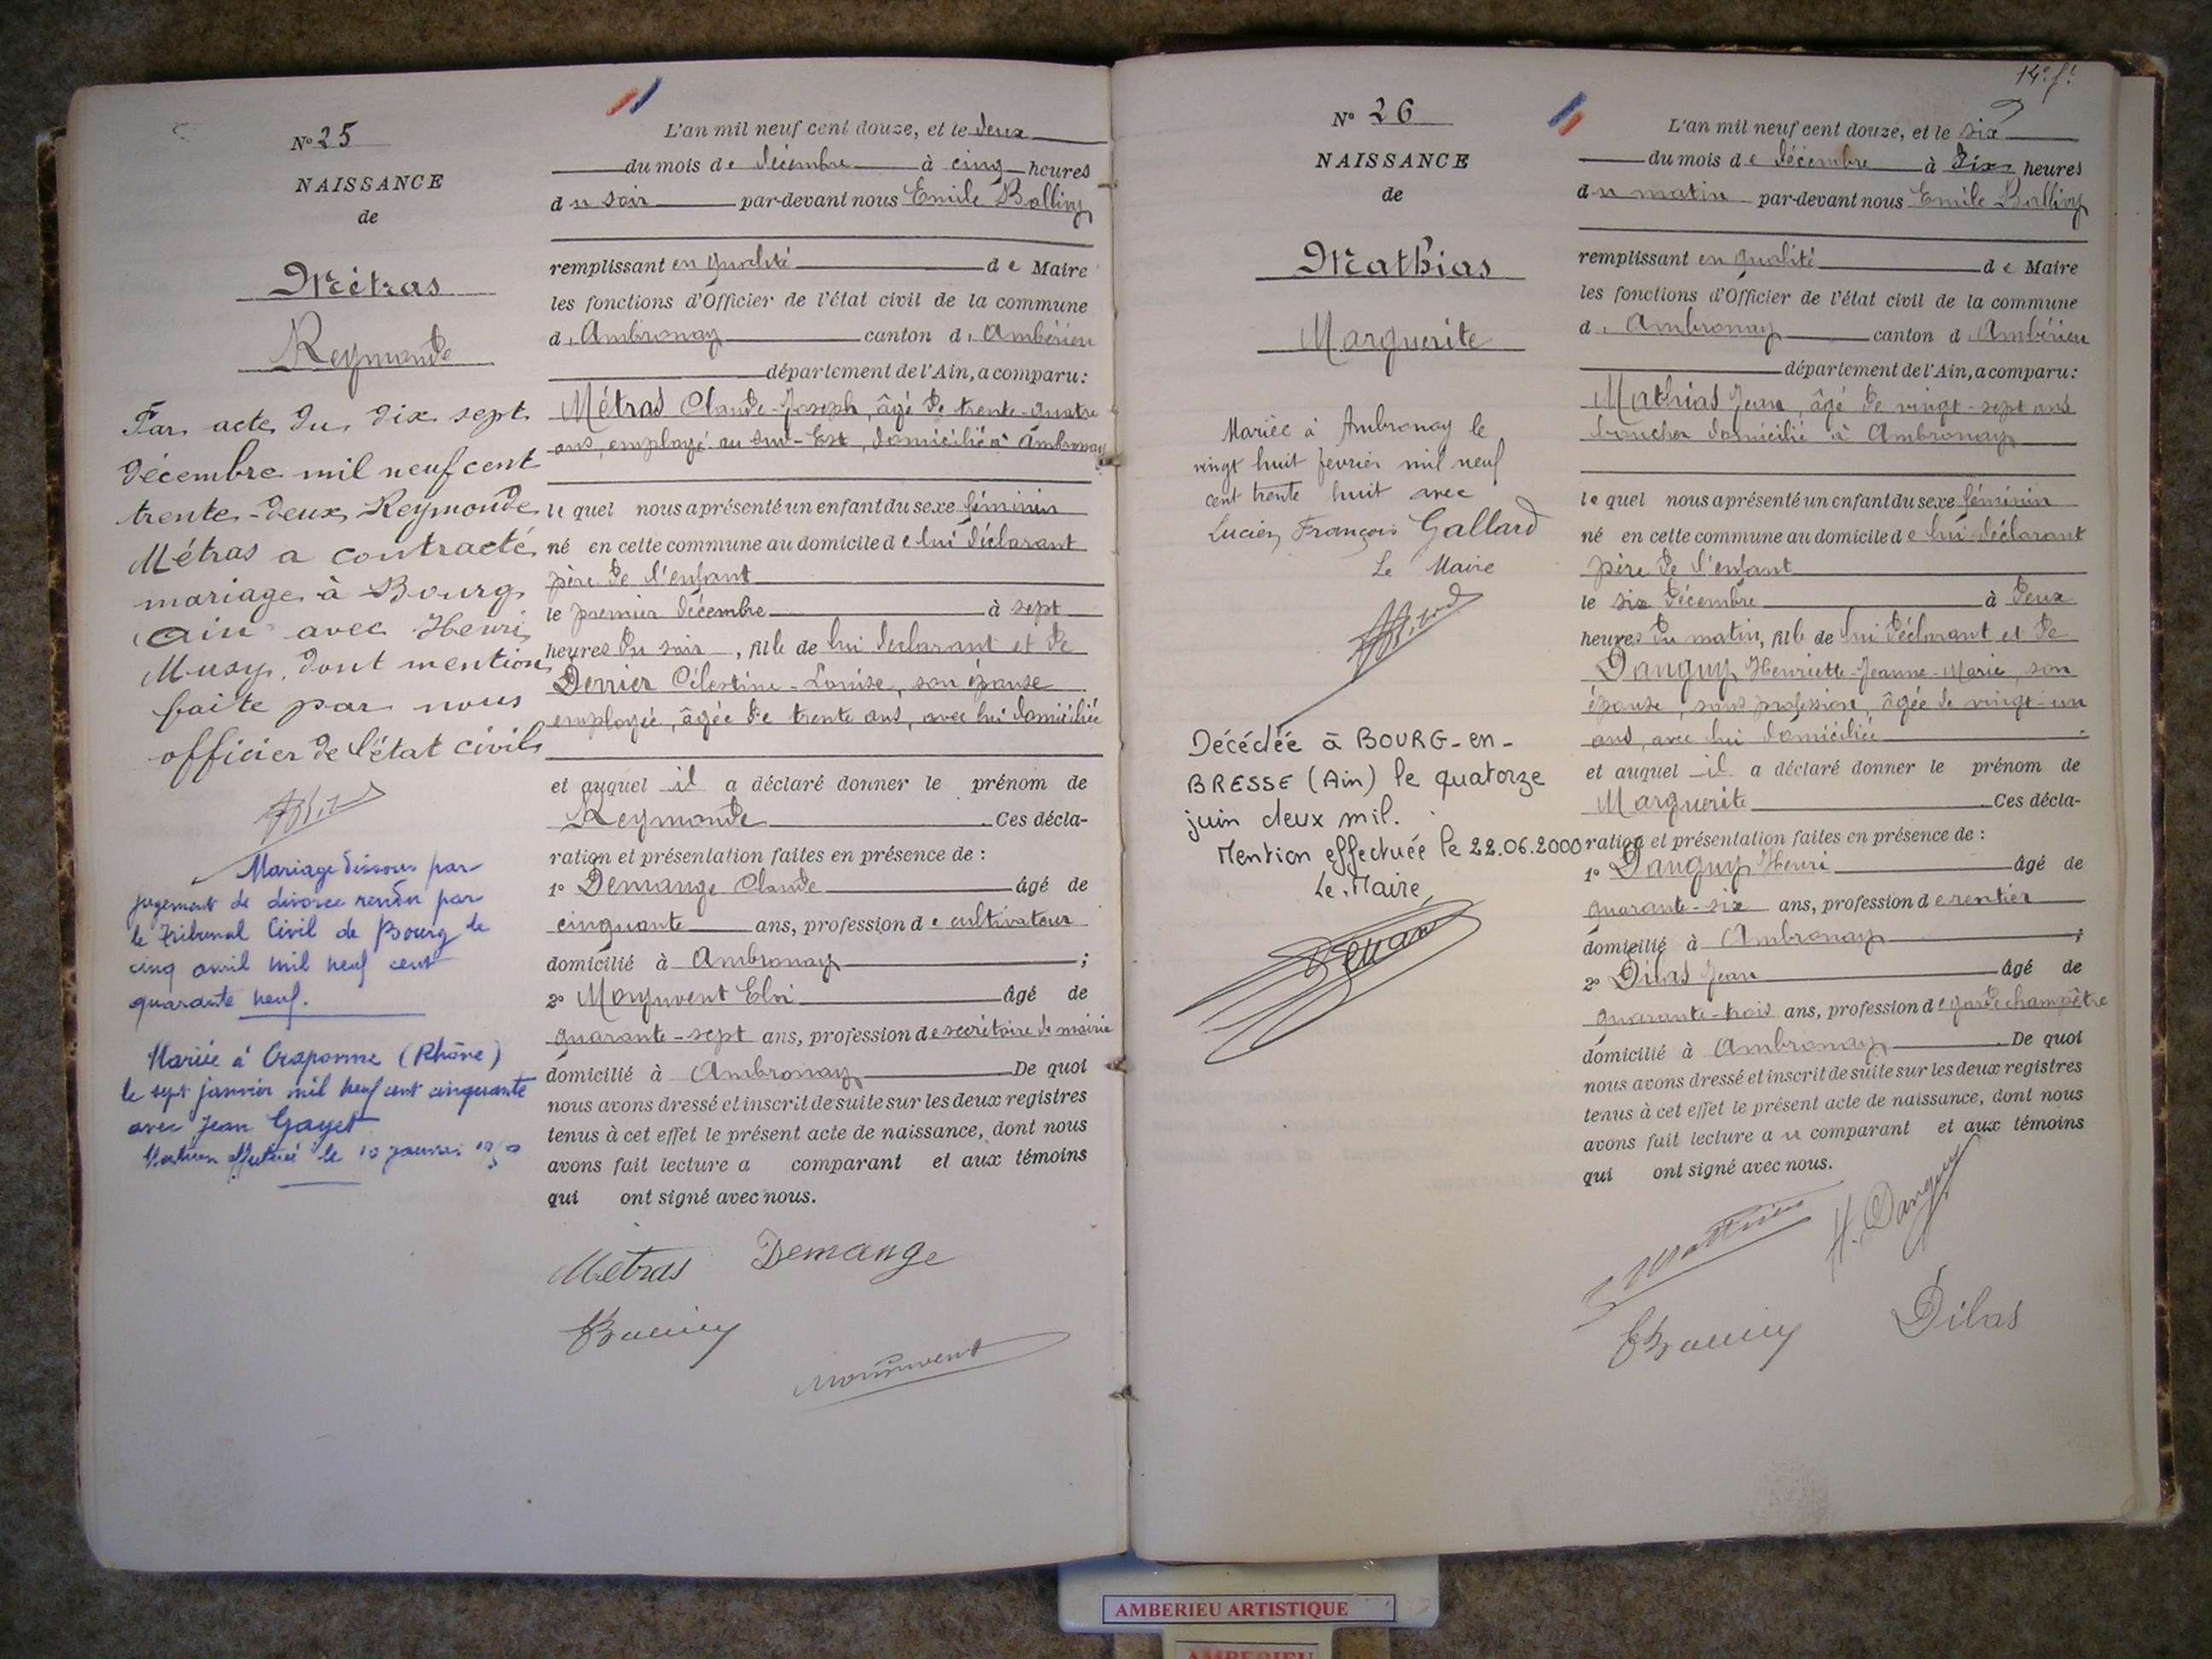 N° 25
NAISSANCE
de
Métras
Reymonde
Par acte du dix sept
décembre mil neuf cent
trente-deux Reymonde
Métras a contracté
mariage à Bourg
(Ain) avec Henri
Musy, dont mention
faite par nous
officier de l'état civil
Mariage dissous par
jugement de divorce rendu par
le Tribunal Civil de Bourg le
cinq avril mil neuf cent
quarante neuf.
Mariée à Craponne (Rhône)
le sept janvier mil neuf cent cinquante
avec Jean Gayet
Mention effectuée le 10 janvier 1950
L'an mil neuf cent douze, et le deux
du mois de décembre à cinq heures
du soir par-devant nous Emile Bollivy
remplissant en qualité de Maire
les fonctions d'Officier de l'état civil de la commune
d'Ambronay canton d'Ambérieu
département de l'Ain, a comparu:
Métras Claude-Joseph, âgé de trente-quatre
ans, employé au Sud-Est, domicilié à Ambronay
le quel nous a présenté un enfant du sexe féminin
né en cette commune au domicile de lui déclarant
père de l'enfant
le premier décembre à sept
heures du soir, fille de lui déclarant et de
Derrier Célestine-Louise, son épouse
employée, âgée de trente ans, avec lui domiciliée
et auquel il a déclaré donner le prénom de
Reymonde Ces décla-
ration et présentation faites en présence de :
1° Demange Claude âgé de
cinquante ans, profession de cultivateur
domicilié à Ambronay ;
2° Monjuvent Eloi âgé de
quarante-sept ans, profession de secrétaire de mairie
domicilié à Ambronay De quoi
nous avons dressé et inscrit de suite sur les deux registres
tenus à cet effet le présent acte de naissance, dont nous
avons fait lecture a comparant et aux témoins
qui ont signé avec nous.
Métras Demange
Monjuvent
14e f.t
N° 26
NAISSANCE
de
Mathias
Marguerite
Mariée à Ambronay le
vingt huit février mil neuf
cent trente huit avec
Lucien François Gallard
Le Maire
Décédée à BOURG-en-
BRESSE (Ain) le quatorze
juin deux mil.
Mention effectuée le 22.06.2000
Le Maire,
L'an mil neuf cent douze, et le six
du mois de décembre à dix heures
du matin par-devant nous Emile Bollivy
remplissant en qualité de Maire
les fonctions d'Officier de l'état civil de la commune
d'Ambronay canton d'Ambérieu
département de l'Ain, a comparu:
Mathias Jean, âgé de vingt-sept ans
boucher domicilié à Ambronay
le quel nous a présenté un enfant du sexe féminin
né en cette commune au domicile de lui déclarant
père de l'enfant
le six décembre à deux
heures du matin, fille de lui déclarant et de
Danguy Henriette-Jeanne-Marie, son
épouse, sans profession, âgée de vingt-un
ans, avec lui domiciliée
et auquel il a déclaré donner le prénom de
Marguerite Ces décla-
ration et présentation faites en présence de :
1° Danguy Henri âgé de
quarante-six ans, profession de rentier
domicilié à Ambronay ;
2° Dilas Jean âgé de
quarante-trois ans, profession de garde champêtre
domicilié à Ambronay De quoi
nous avons dressé et inscrit de suite sur les deux registres
tenus à cet effet le présent acte de naissance, dont nous
avons fait lecture au comparant et aux témoins
qui ont signé avec nous.
J Mathias H. Danguy
Dilas
AMBERIEU ARTISTIQUE
AMBERIEU